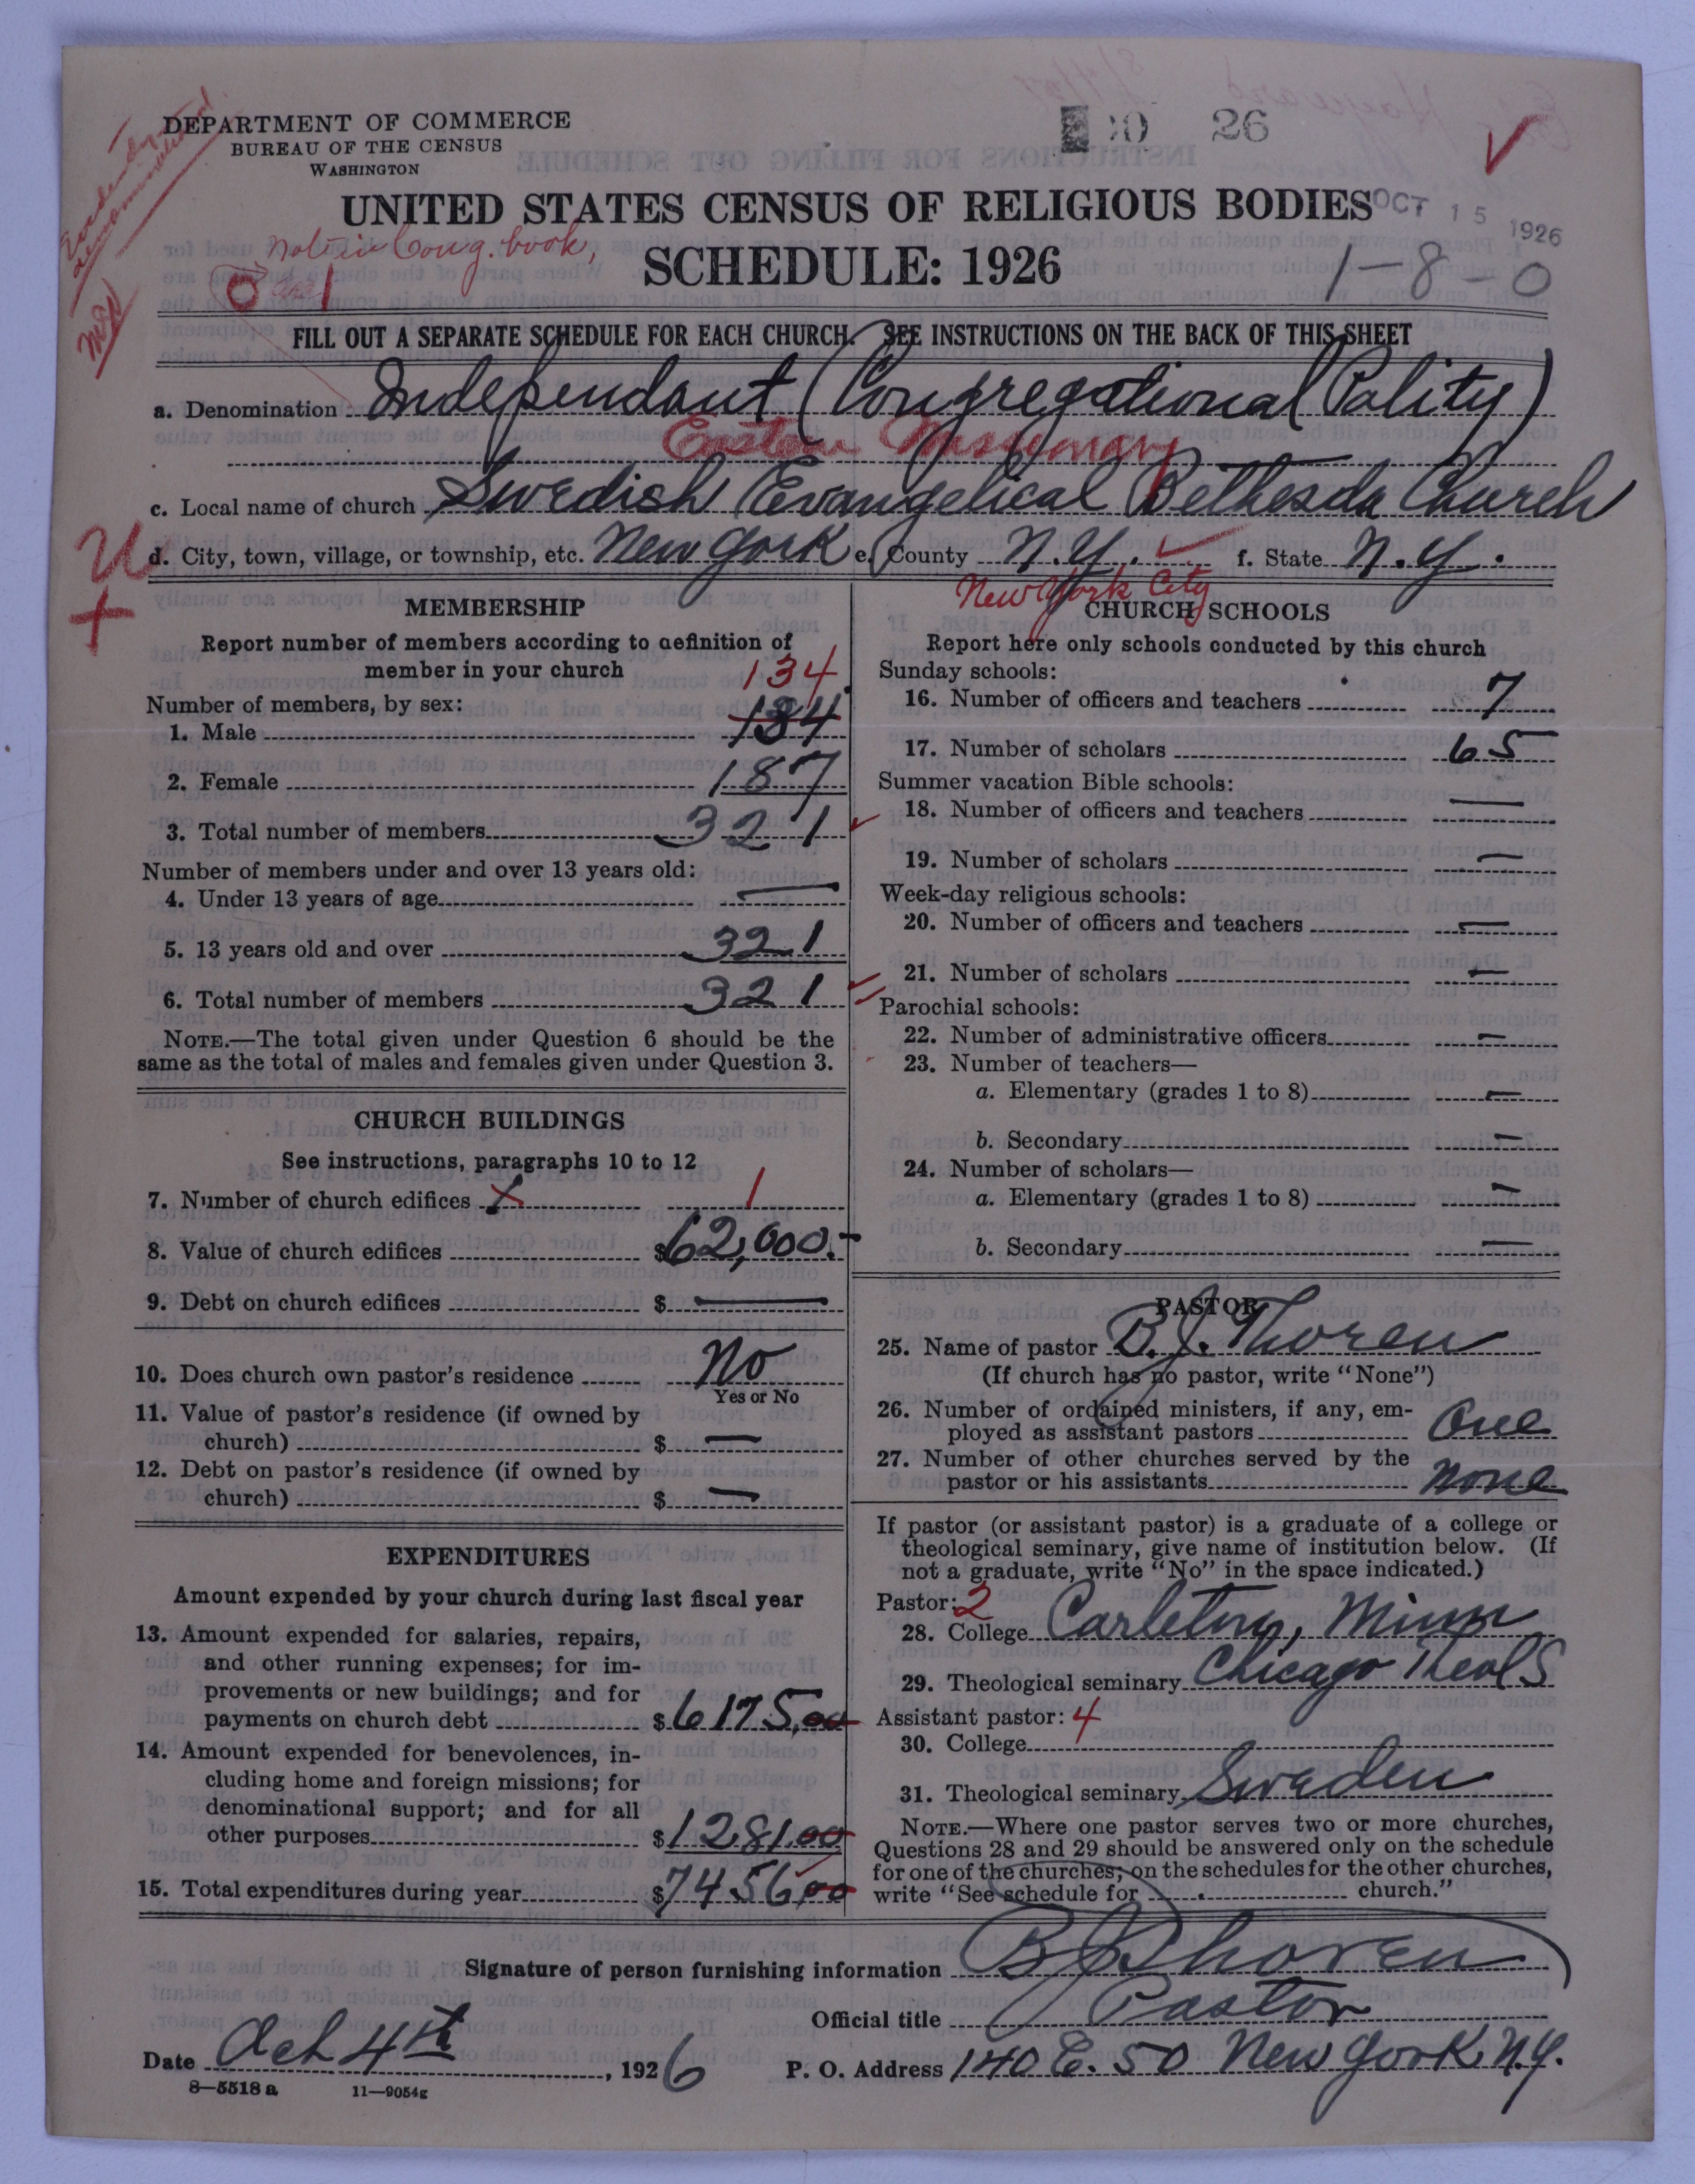 DEPARTMENT OF COMMERCE
BUREAU OF THE CENSUS
WASHINGTON
26
UNITED STATES CENSUS OF RELIGIOUS BODIES
OCT 15 1926
Not in Cong. book,
SCHEDULE: 1926
1-8-0
FILL OUT A SEPARATE SCHEDULE FOR EACH CHURCH. SEE INSTRUCTIONS ON THE BACK OF THIS SHEET
a. Denomination Independant (Congregational Polity)
Eastern Missionary
c. Local name of church Swedish Evangelical Bethesda Church
d. City, town, village, or township, etc. New York e. County N.Y. f. State N.Y.
New York City
MEMBERSHIP
Report number of members according to definition of
member in your church
134
Number of members, by sex:
1. Male 134
2. Female 187
3. Total number of members 321
Number of members under and over 13 years old:
4. Under 13 years of age —
5. 13 years old and over 321
6. Total number of members 321
NOTE.—The total given under Question 6 should be the
same as the total of males and females given under Question 3.
CHURCH BUILDINGS
See instructions, paragraphs 10 to 12
7. Number of church edifices 1
8. Value of church edifices $62,000.-
9. Debt on church edifices $ —
10. Does church own pastor's residence No
Yes or No
11. Value of pastor's residence (if owned by
church) $ —
12. Debt on pastor's residence (if owned by
church) $ —
EXPENDITURES
Amount expended by your church during last fiscal year
13. Amount expended for salaries, repairs,
and other running expenses; for im-
provements or new buildings; and for
payments on church debt $6175,00
14. Amount expended for benevolences, in-
cluding home and foreign missions; for
denominational support; and for all
other purposes $1281.00
15. Total expenditures during year $7456,00
CHURCH SCHOOLS
Report here only schools conducted by this church
Sunday schools:
16. Number of officers and teachers 7
17. Number of scholars 65
Summer vacation Bible schools:
18. Number of officers and teachers —
19. Number of scholars —
Week-day religious schools:
20. Number of officers and teachers —
21. Number of scholars —
Parochial schools:
22. Number of administrative officers —
23. Number of teachers—
a. Elementary (grades 1 to 8) —
b. Secondary —
24. Number of scholars—
a. Elementary (grades 1 to 8) —
b. Secondary —
PASTOR
25. Name of pastor B. J. Thoren
(If church has no pastor, write "None")
26. Number of ordained ministers, if any, em-
ployed as assistant pastors One
27. Number of other churches served by the
pastor or his assistants None
If pastor (or assistant pastor) is a graduate of a college or
theological seminary, give name of institution below. (If
not a graduate, write "No" in the space indicated.)
Pastor: 2
28. College Carleton, Minn
29. Theological seminary Chicago Theol S
Assistant pastor: 4
30. College
31. Theological seminary Sweden
NOTE.—Where one pastor serves two or more churches,
Questions 28 and 29 should be answered only on the schedule
for one of the churches; on the schedules for the other churches,
write "See schedule for church."
Signature of person furnishing information B J Thoren
Official title Pastor
Date Oct 4th, 1926 P. O. Address 140 E. 50 New York, N.Y.
8—5518 a 11—9054g